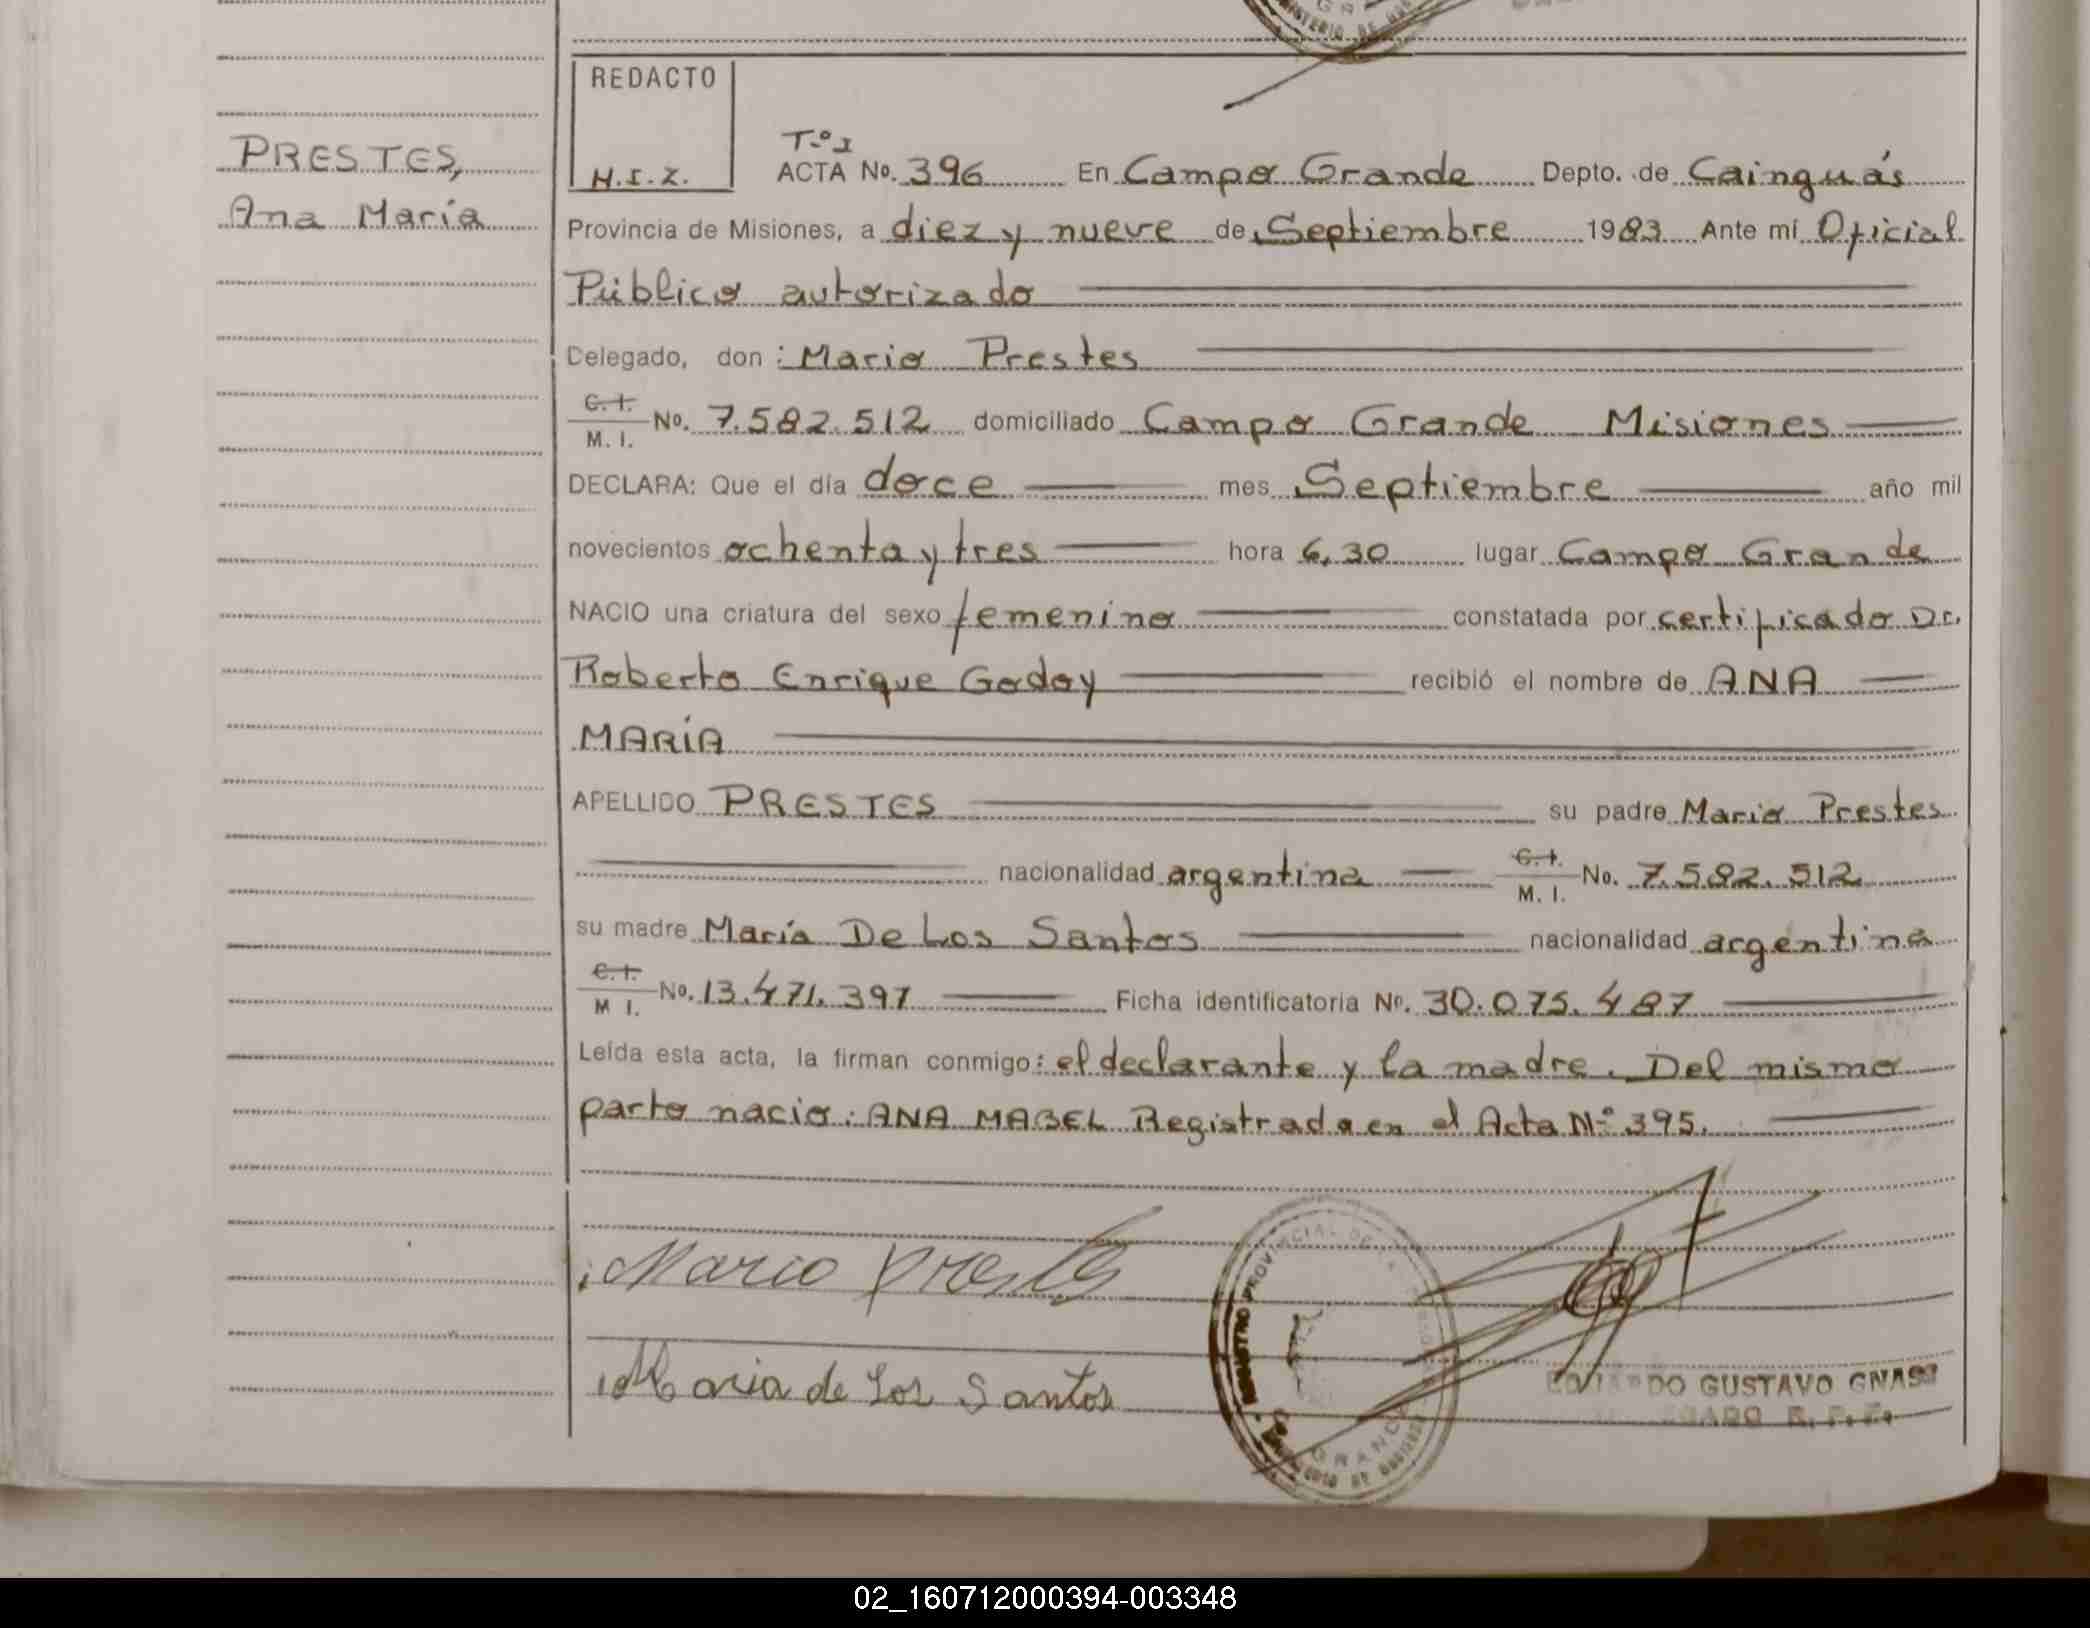 REDACTO
H.I.Z.
PRESTES,
Ana María
Tº I
ACTA No. 396 En Campo Grande Depto. de Cainguás
Provincia de Misiones, a diez y nueve de Septiembre 1983 Ante mí Oficial
Público autorizado
Delegado, don: Mario Prestes
C.I.
M. I. No. 7.582.512 domiciliado Campo Grande Misiones
DECLARA: Que el día doce mes Septiembre año mil
novecientos ochenta y tres hora 6,30 lugar Campo Grande
NACIO una criatura del sexo femenino constatada por certificado Dr.
Roberto Enrique Godoy recibió el nombre de ANA
MARÍA
APELLIDO PRESTES su padre Mario Prestes
nacionalidad argentina C.I. M. I. No. 7.582.512
su madre María De Los Santos nacionalidad argentina
C.I.
M I. No. 13.471.397 Ficha identificatoria Nº. 30.075.487
Leída esta acta, la firman conmigo: el declarante y la madre. Del mismo
parto nacio: ANA MABEL Registrada en el Acta Nº 395.
Mario Prestes
Maria de Los Santos
REGISTRO PROVINCIAL DE
GRANDE
GUSTAVO GNASS
02_160712000394-003348